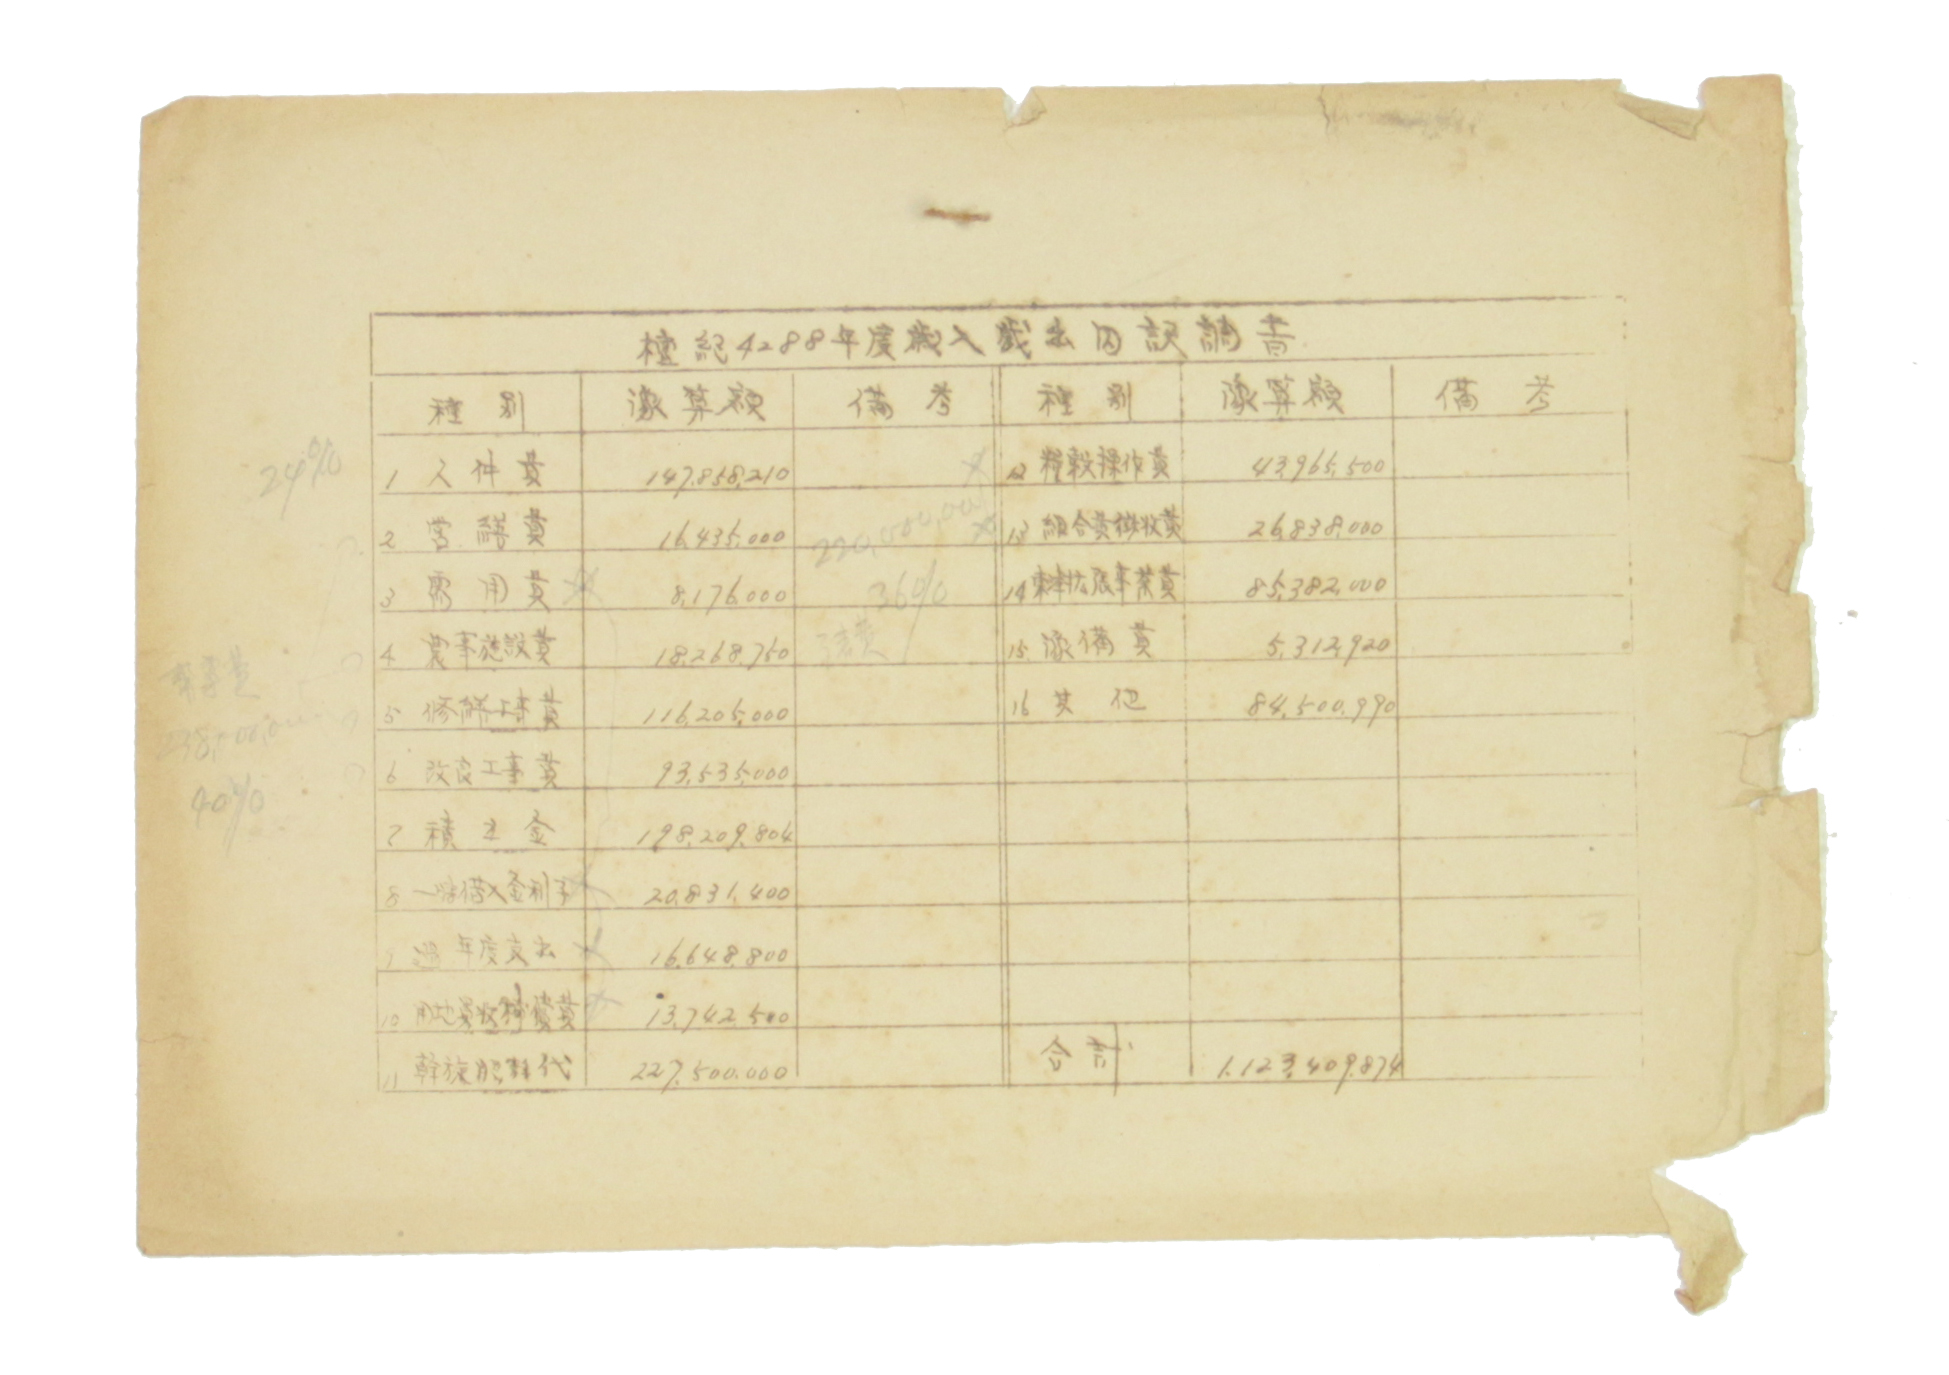 檀紀4288年度歲入歲出內訳調書
種別 豫算額 備考 種別 豫算額 備考
1 人件費 147,858,210
2 営繕費 16,435,000
3 需用費 8,176,000
4 農事施設費 18,268,750
5 修繕工事費 116,205,000
6 改良工事費 93,535,000
7 積立金 198,209,804
8 一時借入金利子 20,831,400
9 過年度支出 16,648,800
10 用地買收補償費 13,742,500
11 斡旋肥料代 227,500,000
12 糧穀操作費 43,965,500
13 組合費徵收費 26,838,000
14 東津拡張事業費 85,382,000
15 豫備費 5,312,920
16 其他 84,500,990
合計 1,123,409,874
24%
40%
220,000,000
36%